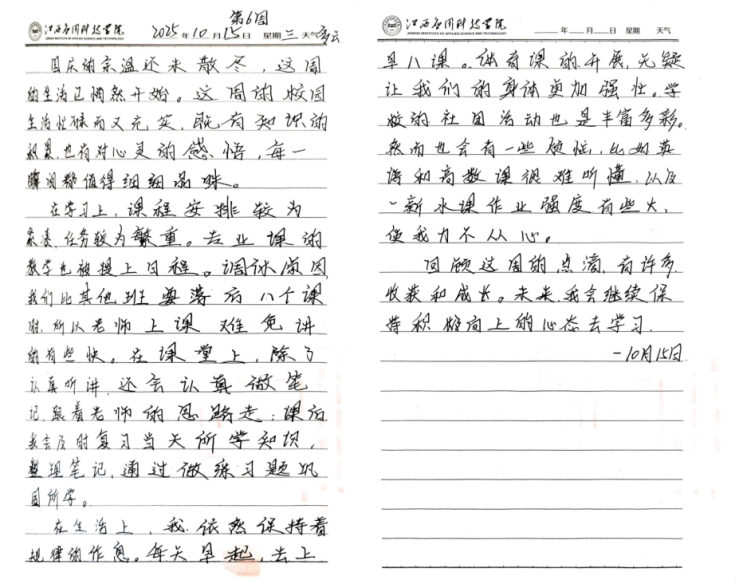 第6周
江西应用科技学院
JIANGXI INSTITUTE OF APPLIED SCIENCE AND TECHNOLOGY
2025年10月15日 星期三 天气多云
国庆的余温还未散尽，这周
的生活已悄然开始。这周的校园
生活忙碌而又充实，既有知识的
积累，也有对心灵的感悟，每一
瞬间都值得细细品味。
在学习上，课程安排较为
紧凑、任务较为繁重。专业课的
教学也被提上日程。调休原因，
我们比其他班要落后八个课
时，所以老师上课难免讲
的有些快。在课堂上，除了
认真听讲，还会认真做笔
记，跟着老师的思路走；课后
我会及时复习当天所学知识，
整理笔记，通过做练习题巩
固所学。
在生活上，我依然保持着
规律的作息。每天早起，去上
江西应用科技学院
JIANGXI INSTITUTE OF APPLIED SCIENCE AND TECHNOLOGY
年 月 日 星期 天气
早八课。体育课的开展，无疑
让我们的身体更加强壮。学
校的社团活动也是丰富多彩。
然而也会有一些烦恼，比如英
语和高数课很难听懂，以及
一新水课作业强度有些大，
使我力不从心。
回顾这周的点滴，有许多
收获和成长。未来，我会继续保
持积极向上的心态去学习.
-10月15日